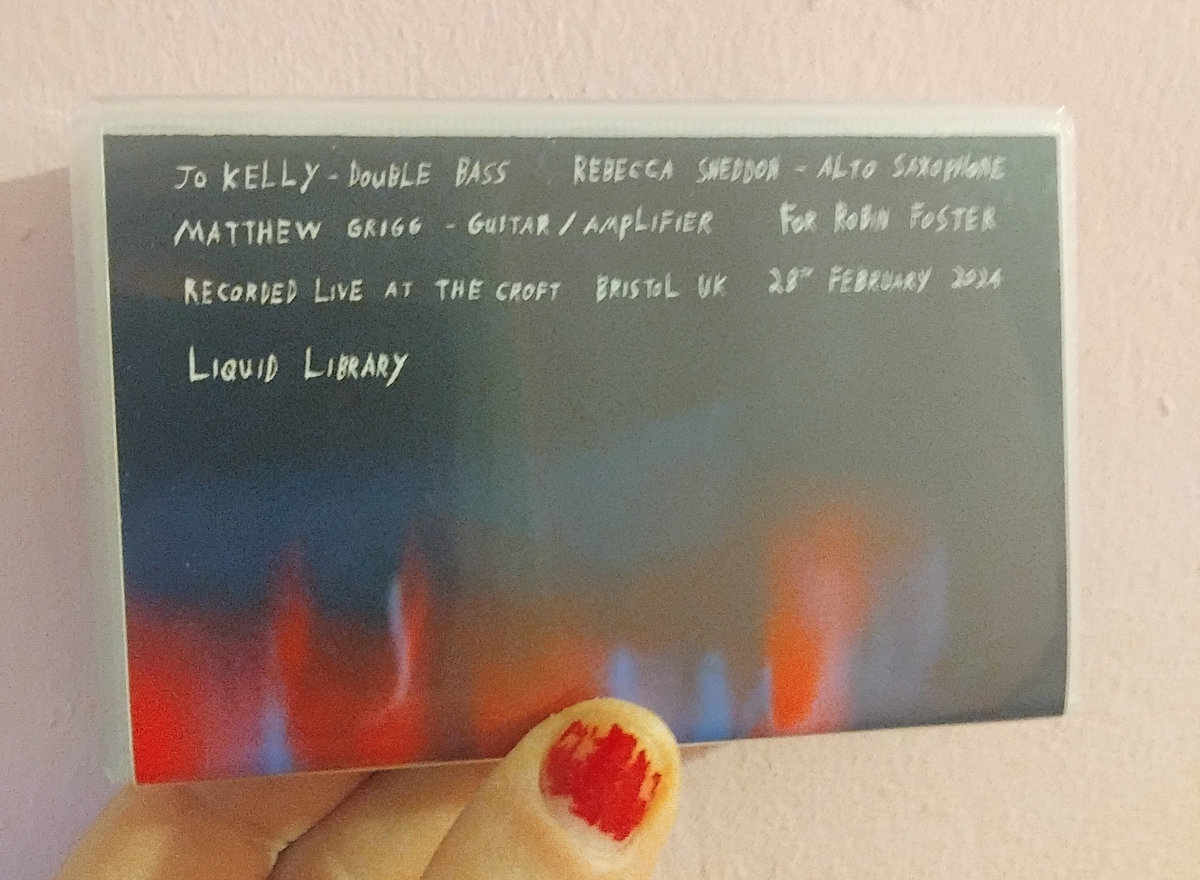 JO KELLY - DOUBLE BASS REBECCA SNEDDON - ALTO SAXOPHONE
MATTHEW GRIGG - GUITAR / AMPLIFIER FOR ROBIN FOSTER
RECORDED LIVE AT THE CROFT BRISTOL UK 28TH FEBRUARY 2024
LIQUID LIBRARY